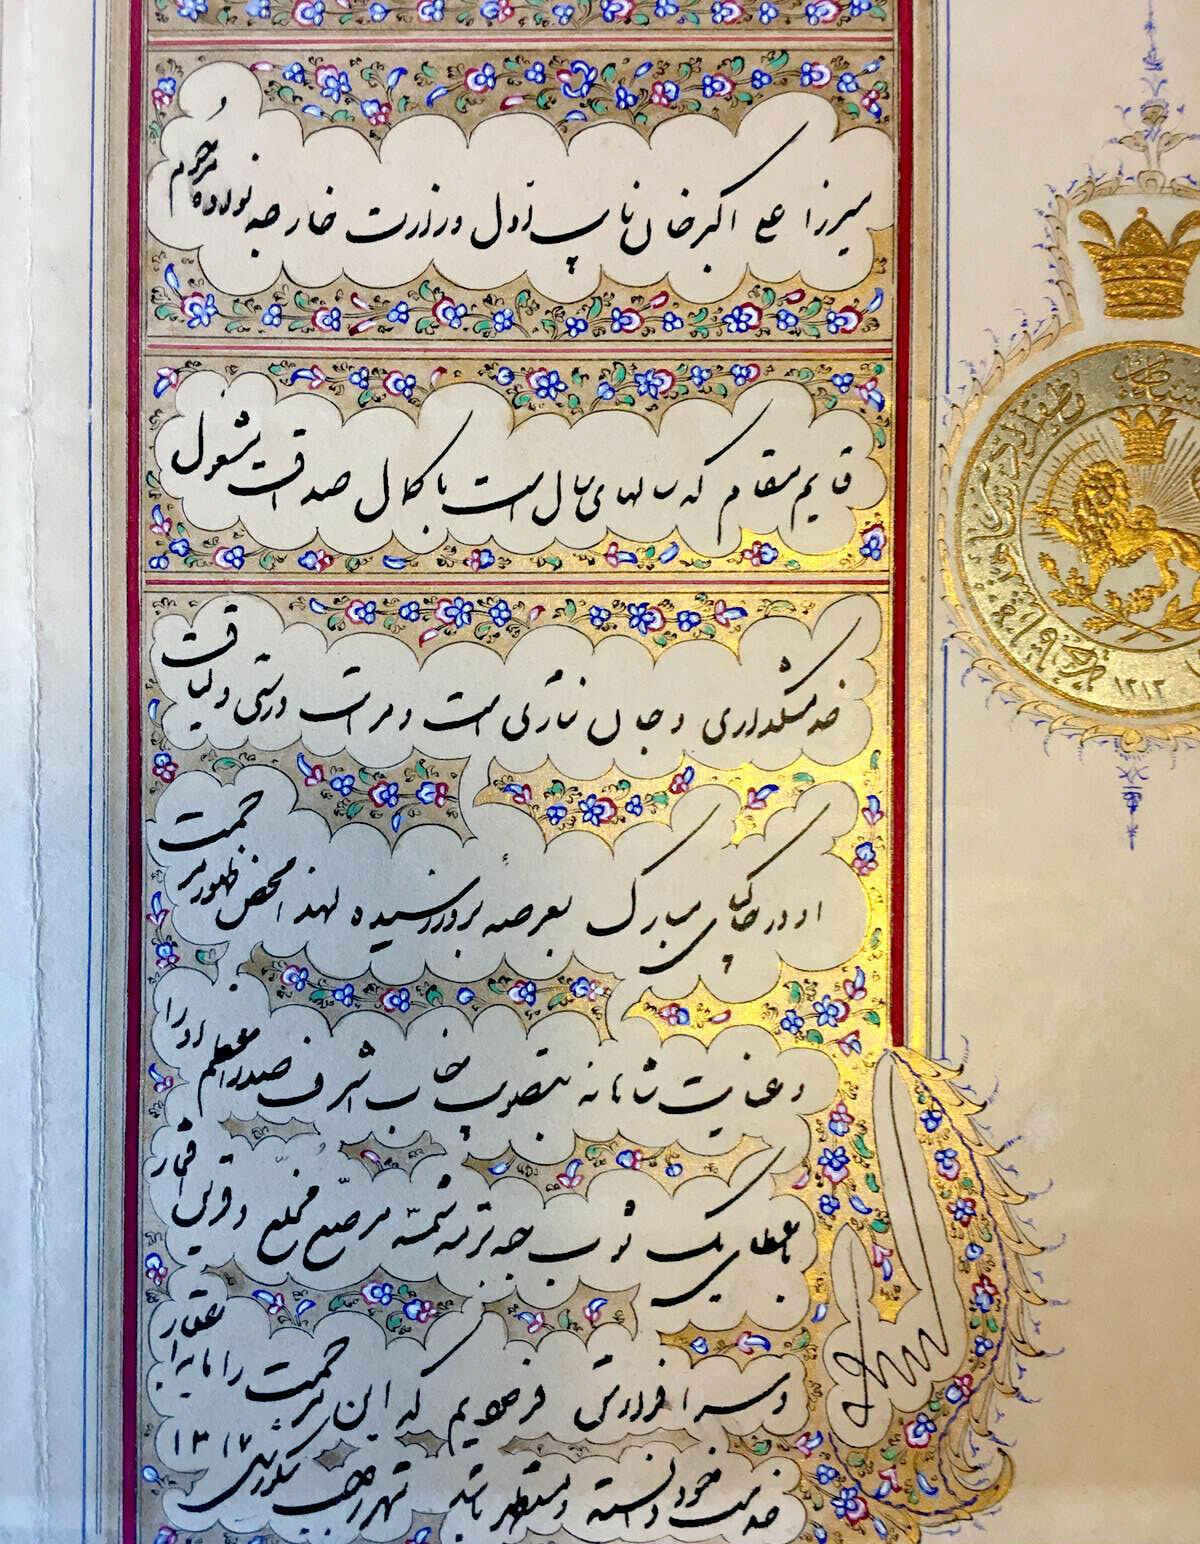 میرزا علی اکبر خان نایب اول وزارت خارجه نواده مرحوم
قایم مقام که سالهای سال است با کمال صداقت مشغول
خدمتگذاری و جان نثاری است و مراتب درستی و لیاقت
او در خاکپای مبارک بعرصه بروز رسیده لهذا محض ظهور مرحمت
و عنایت شاهانه بتصویب جناب اشرف صدراعظم او را
باعطای یک ثوب جبه ترمه شمسه مرصع مخلع و قرین افتخار
و سرافرازی فرمودیم که این مرحمت را مایه اعتقار
خدمت خود دانسته و مستظهر باشد شهر رجب ۱۳۱۷
۱۳۱۳